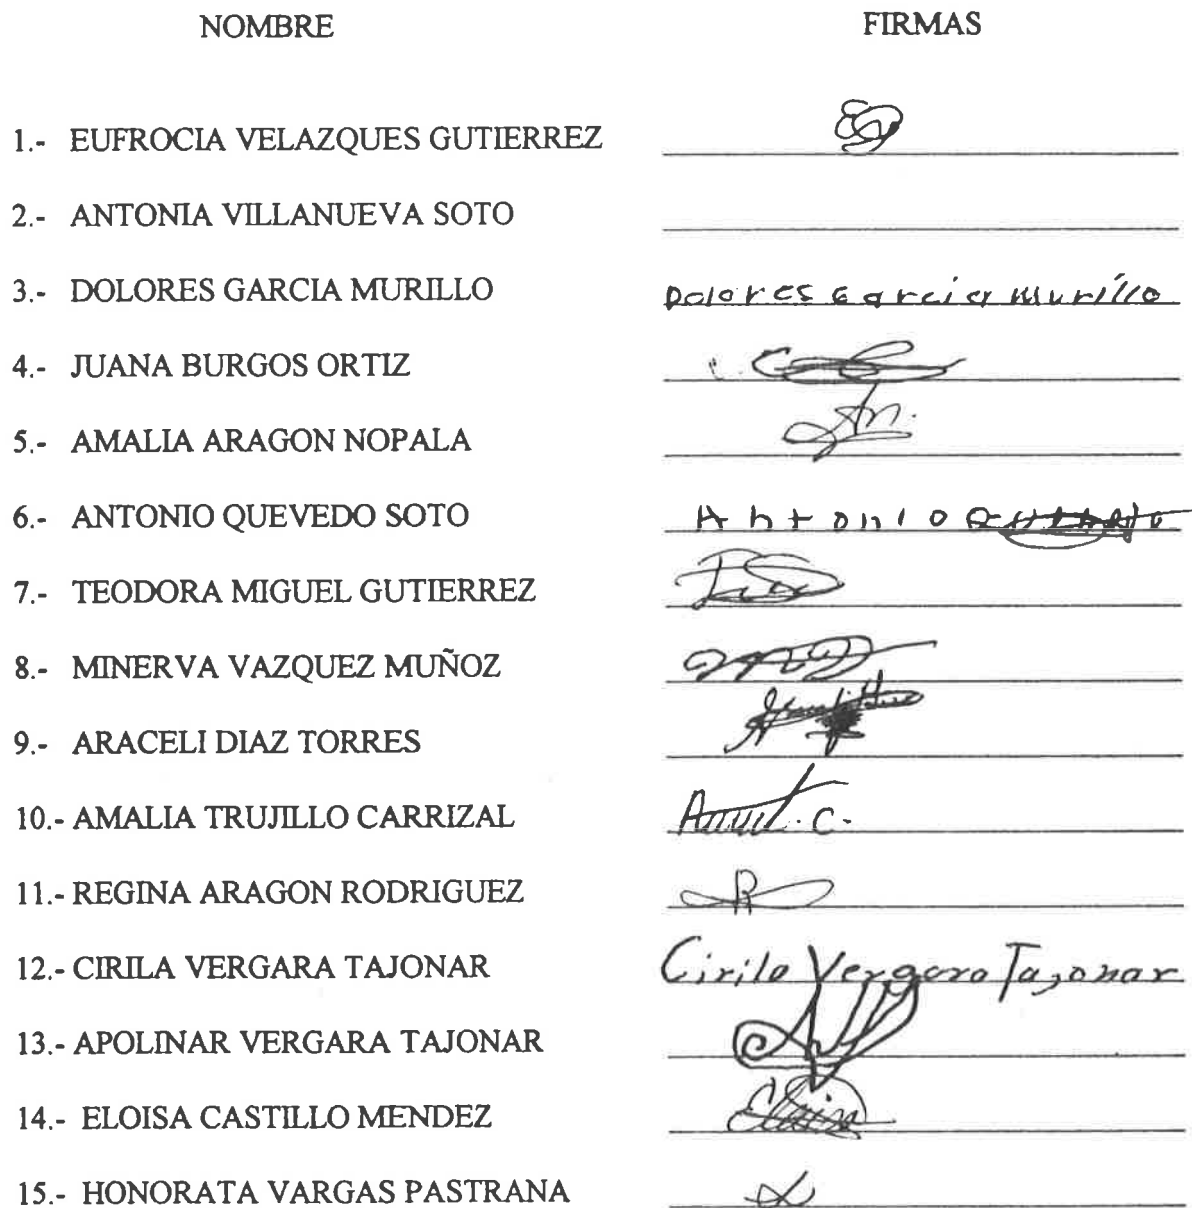 NOMBRE FIRMAS
1.- EUFROCIA VELAZQUES GUTIERREZ
2.- ANTONIA VILLANUEVA SOTO
3.- DOLORES GARCIA MURILLO Dolores Garcia Murillo
4.- JUANA BURGOS ORTIZ
5.- AMALIA ARAGON NOPALA
6.- ANTONIO QUEVEDO SOTO Antonio
7.- TEODORA MIGUEL GUTIERREZ
8.- MINERVA VAZQUEZ MUÑOZ
9.- ARACELI DIAZ TORRES
10.- AMALIA TRUJILLO CARRIZAL
11.- REGINA ARAGON RODRIGUEZ R
12.- CIRILA VERGARA TAJONAR Cirila Vergara Tajonar
13.- APOLINAR VERGARA TAJONAR
14.- ELOISA CASTILLO MENDEZ
15.- HONORATA VARGAS PASTRANA